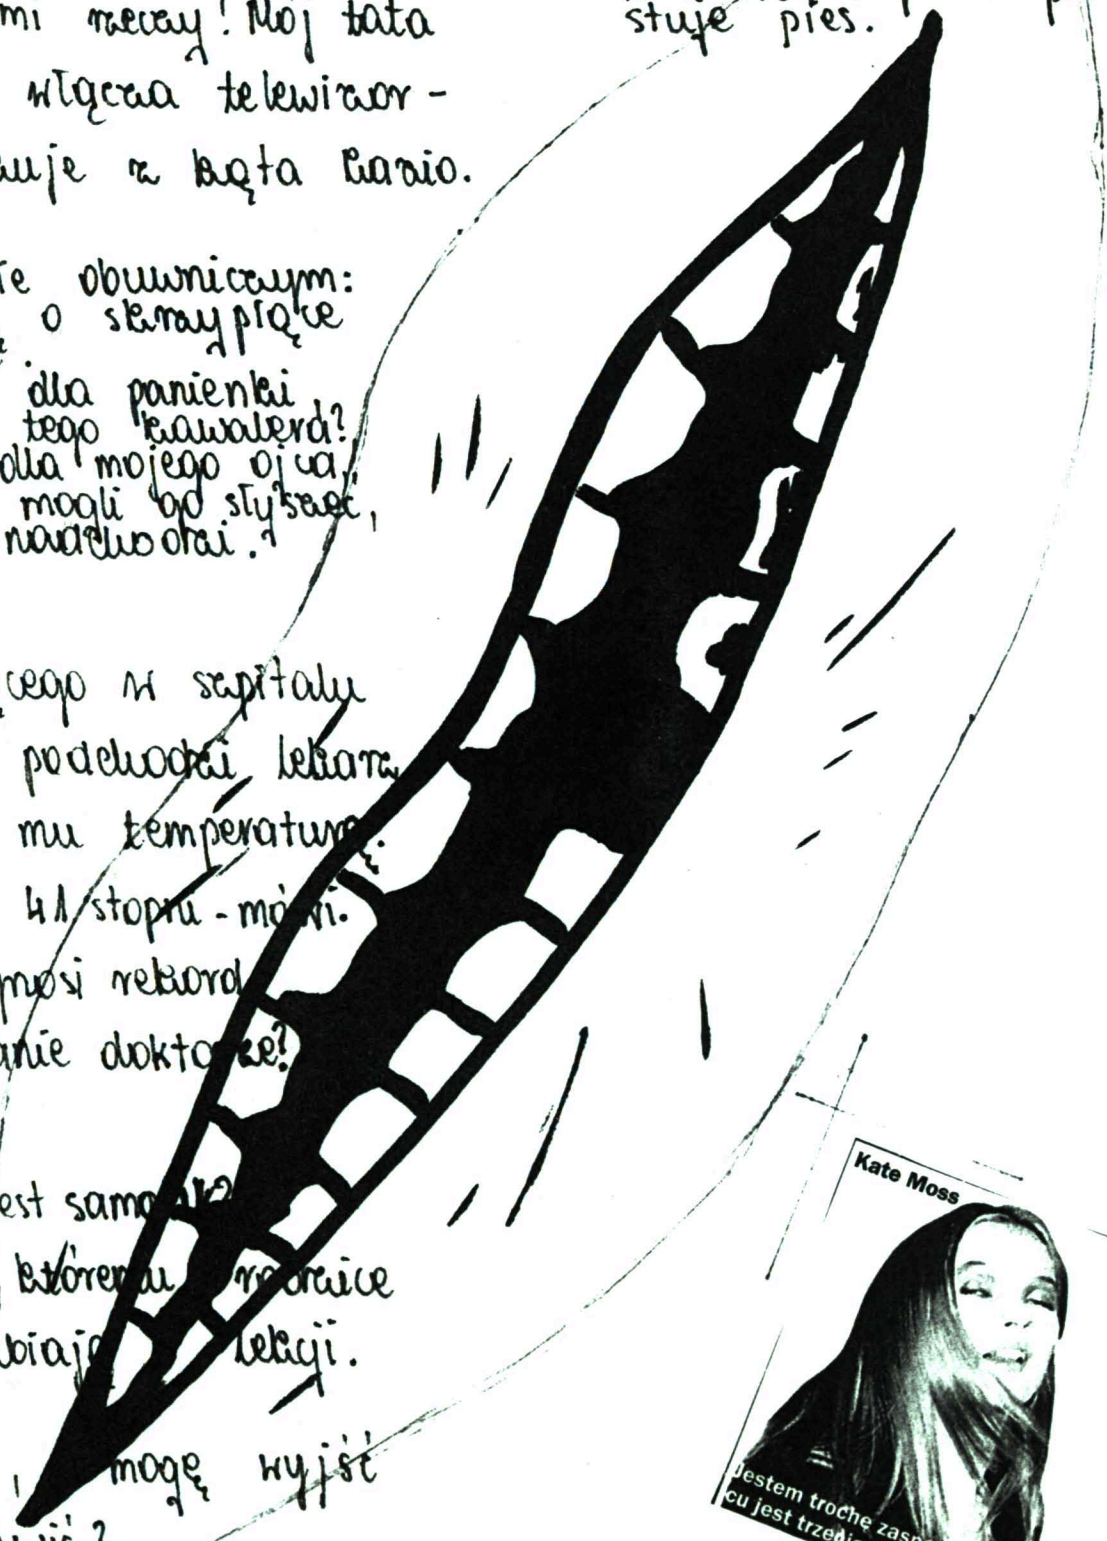 mi rzeczy! Mój tata
włącza telewizor -
uje z kąta Kazio.
obuwniczym:
o skrzypiące
dla panienki
tego kawalera?
dla mojego ojca,
mogli go słyszeć,
nadchodzi.
cego w szpitalu
podchodzi lekarz
mu temperaturę.
41 stopni - mówi.
nosi rekord
anie doktorze?
est samouk?
któremu rodzice
biają lekcji.
mogę wyjść
stuje pies.
Kate Moss
Jestem trochę
cu jest